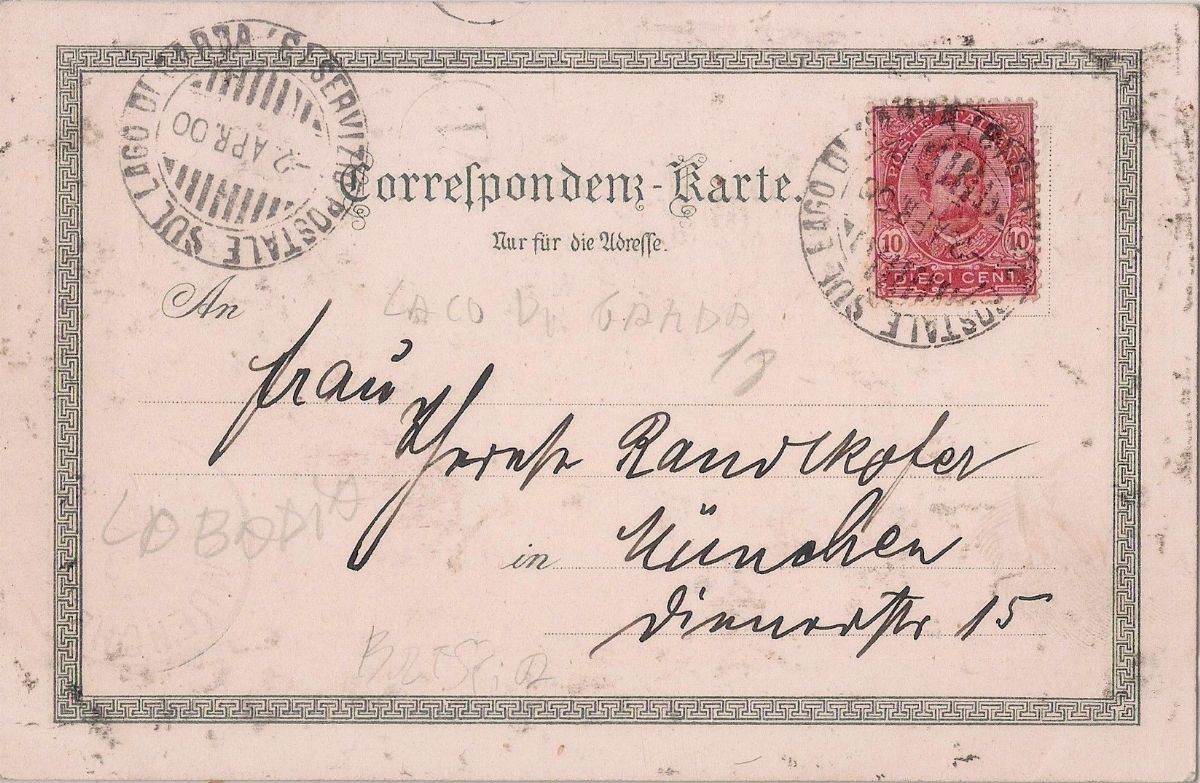 SERVIZIO POSTALE SUL LAGO DI GARDA
2 APR. 00
T.
Correſpondenz-Karte.
Nur für die Adreſſe.
POSTE ITALIANE
10 10
DIECI CENT.
POSTALE SUL LAGO DI
An
LAGO DI GARDA
18
Frau
Therese Randlkofer
LOBODIA
in München
Dienerstr 15
BRESCIA